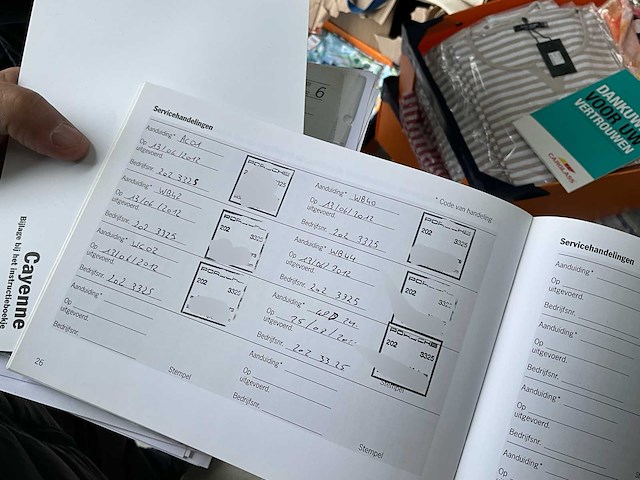 Servicehandelingen
Aanduiding* AC01
Op 13/06/2012
uitgevoerd.
Bedrijfsnr. 202 3325
PORSCHE
3325
Aanduiding* WB42
Op 13/06/2012
uitgevoerd.
Bedrijfsnr. 202 3325
PORSCHE
202 3325
Aanduiding* WC02
Op 13/06/2012
uitgevoerd.
Bedrijfsnr. 202 3325
PORSCHE
202 3325
Aanduiding*
Op
uitgevoerd.
Bedrijfsnr.
Stempel
26
* Code van handeling
Aanduiding* WB40
Op 13/06/2012
uitgevoerd.
Bedrijfsnr. 202 3325
PORSCHE
202 3325
Aanduiding* WB44
Op 13/06/2012
uitgevoerd.
Bedrijfsnr. 202 3325
PORSCHE
202 3325
Aanduiding*
Op
uitgevoerd.
Bedrijfsnr. 202 3325
PORSCHE
202 3325
Stempel
Aanduiding*
Op
uitgevoerd.
Bedrijfsnr.
Stempel
Servicehandelingen
Aanduiding*
Op
uitgevoerd.
Bedrijfsnr.
Aanduiding*
Op
uitgevoerd.
Bedrijfsnr.
Aanduiding*
Op
uitgevoerd.
Bedrijfsnr.
Aanduiding*
Op
Cayenne
Bijlage bij het instructieboekje
6
DANK
VOOR UW
VERTROUWEN
CARGLASS